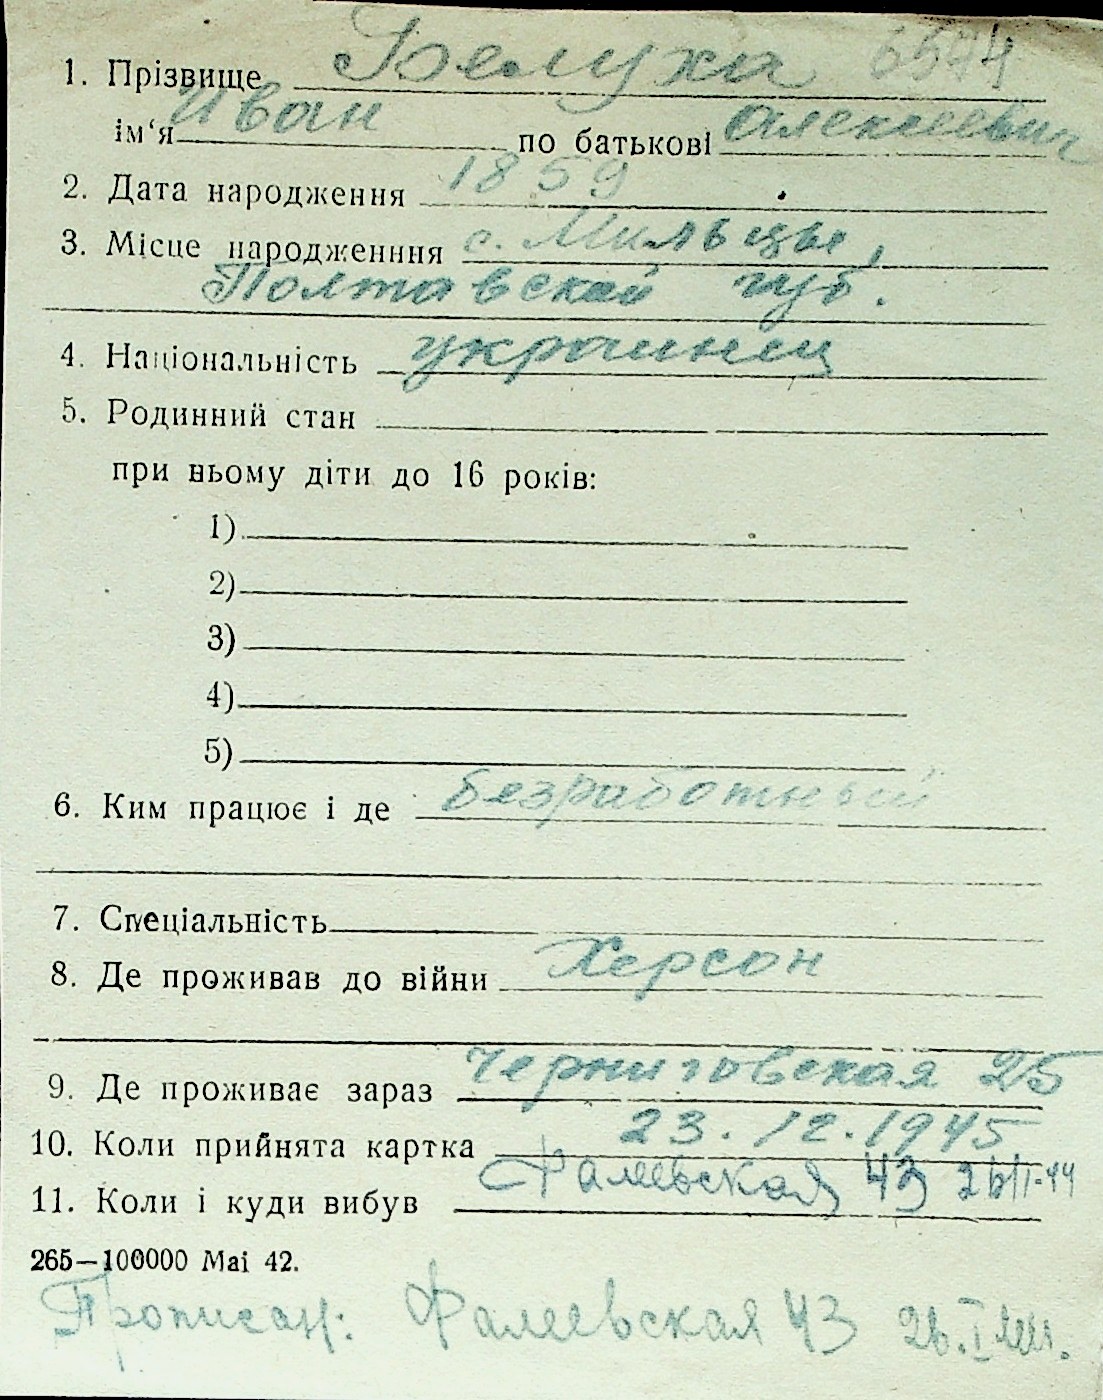 1. Прізвище Белуха 5574
ім‘я Иван по батькові Алексеевич
2. Дата народження 1859
3. Місце народженння с. Мильцы,
Полтавской губ.
4. Національність украинец
5. Родинний стан
при ньому діти до 16 років:
1)
2)
3)
4)
5)
6. Ким працює і де безработный
7. Спеціальність
8. Де проживав до війни Херсон
9. Де проживає зараз Черниговская 25
10. Коли прийнята картка 23.12.1945
11. Коли і куди вибув Фалеевская 43
265—100000 Mai 42.
Прописан: Фалеевская 43 26.I